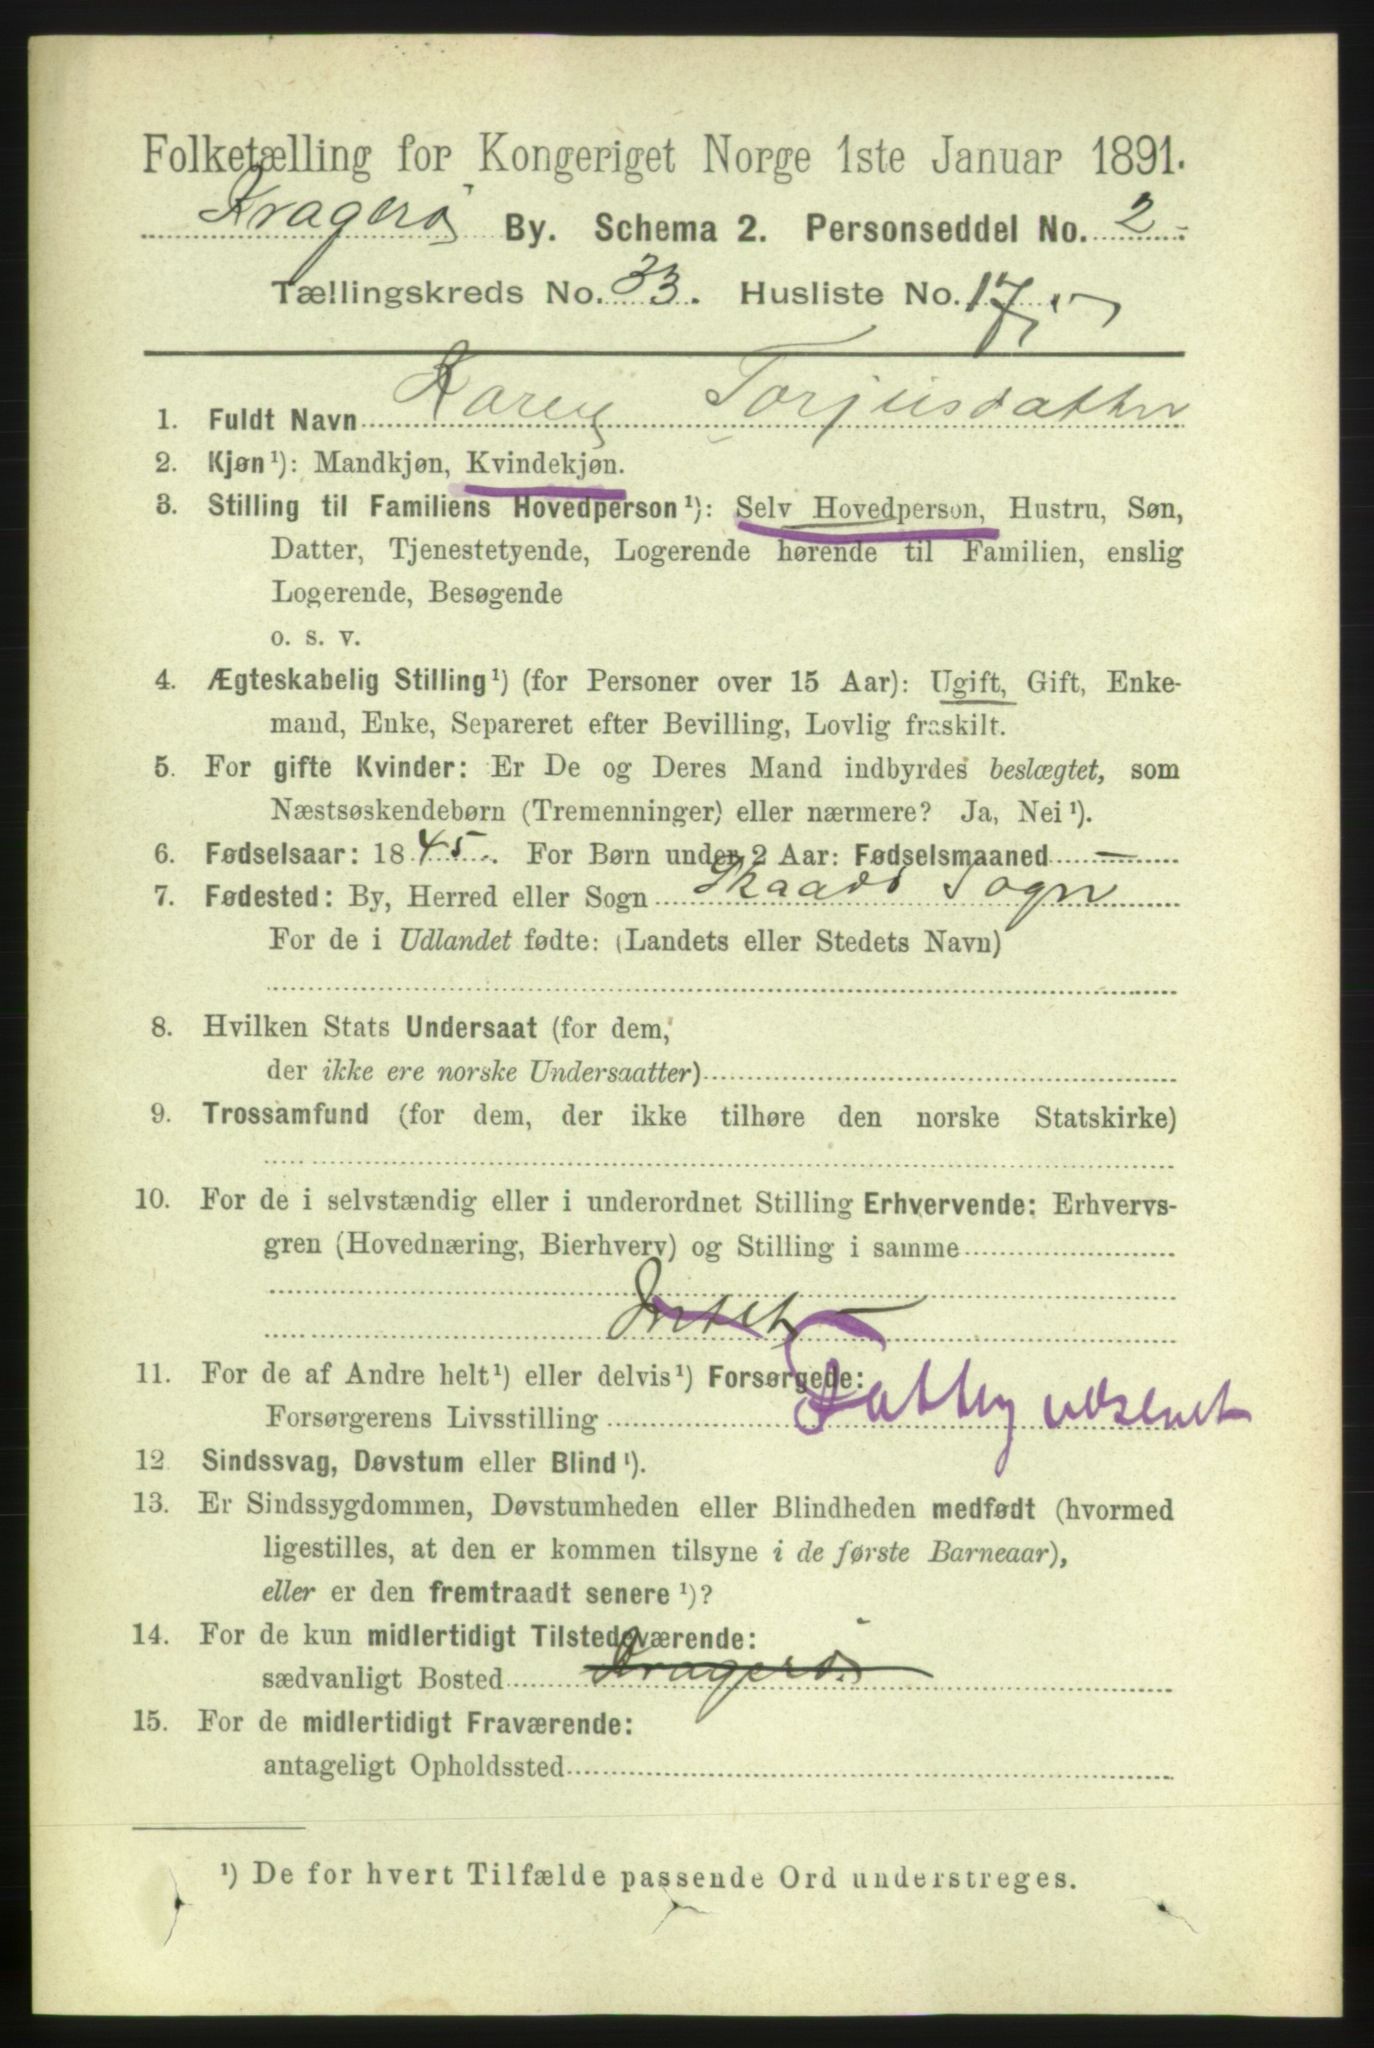 Folketælling for Kongeriget Norge 1ste Januar 1891.
Kragerø By. Schema 2. Personseddel No. 2
Tællingskreds No. 33. Husliste No. 17
1. Fuldt Navn Karen Torjusdatter
2. Kjøn¹): Mandkjøn, Kvindekjøn.
3. Stilling til Familiens Hovedperson¹): Selv Hovedperson, Hustru, Søn,
Datter, Tjenestetyende, Logerende hørende til Familien, enslig
Logerende, Besøgende
o. s. v.
4. Ægteskabelig Stilling¹) (for Personer over 15 Aar): Ugift, Gift, Enke-
mand, Enke, Separeret efter Bevilling, Lovlig fraskilt.
5. For gifte Kvinder: Er De og Deres Mand indbyrdes beslægtet, som
Næstsøskendebørn (Tremenninger) eller nærmere? Ja, Nei¹).
6. Fødselsaar: 1845. For Børn under 2 Aar: Fødselsmaaned —
7. Fødested: By, Herred eller Sogn Skaadø Sogn
For de i Udlandet fødte: (Landets eller Stedets Navn)
8. Hvilken Stats Undersaat (for dem,
der ikke ere norske Undersaatter)
9. Trossamfund (for dem, der ikke tilhøre den norske Statskirke)
10. For de i selvstændig eller i underordnet Stilling Erhvervende: Erhvervs-
gren (Hovednæring, Bierhverv) og Stilling i samme
Intet
11. For de af Andre helt¹) eller delvis¹) Forsørgede:
Forsørgerens Livsstilling Fattigvæsenet
12 Sindssvag, Døvstum eller Blind¹).
13. Er Sindssygdommen, Døvstumheden eller Blindheden medfødt (hvormed
ligestilles, at den er kommen tilsyne i de første Barneaar),
eller er den fremtraadt senere¹)?
14. For de kun midlertidigt Tilstedeværende:
sædvanligt Bosted Kragerø
15. For de midlertidigt Fraværende:
antageligt Opholdssted
¹) De for hvert Tilfælde passende Ord understreges.